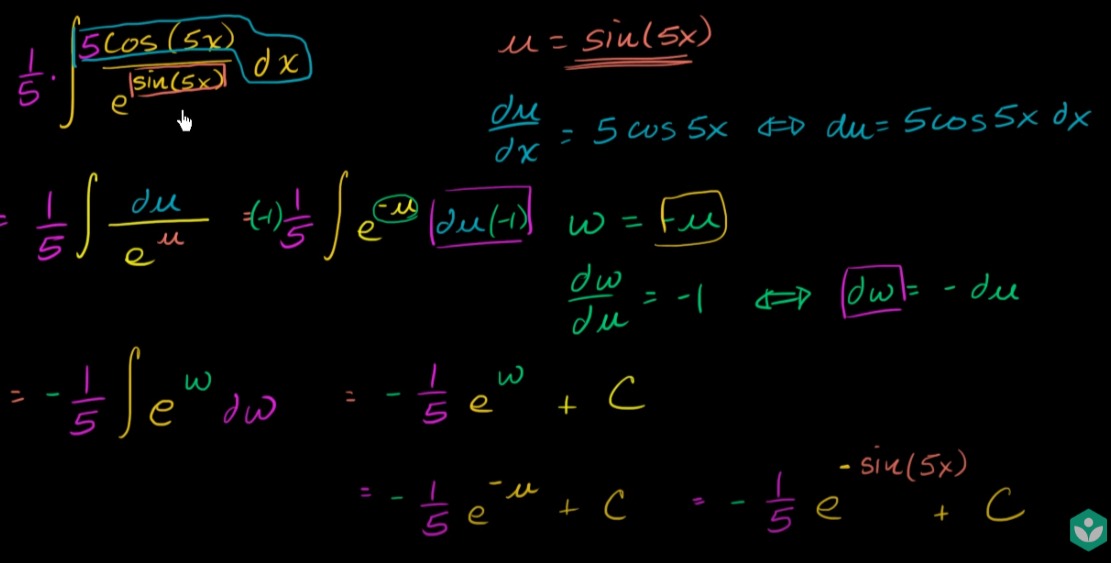 1/5 · ∫ 5cos(5x)/e^sin(5x) dx
u = sin(5x)
du/dx = 5 cos 5x ⇔ du = 5cos5x dx
= 1/5 ∫ du/e^u = (-1) 1/5 ∫ e^-u du(-1)
w = -u
dw/du = -1 ⇔ dw = - du
= - 1/5 ∫ e^w dw = - 1/5 e^w + C
= - 1/5 e^-u + C = - 1/5 e^-sin(5x) + C